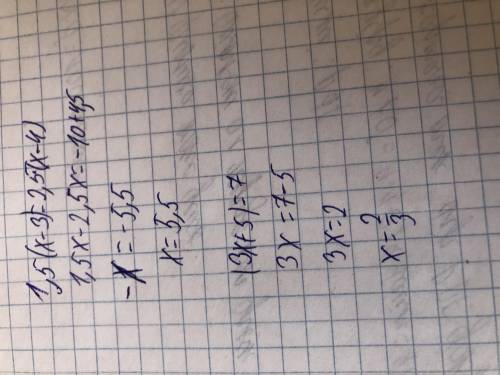 1,5(x-3)=2,5(x-4)
1,5x-2,5x=-10+4,5
-x=-5,5
x=5,5
|3x+5|=7
3x=7-5
3x=2
x=2/3